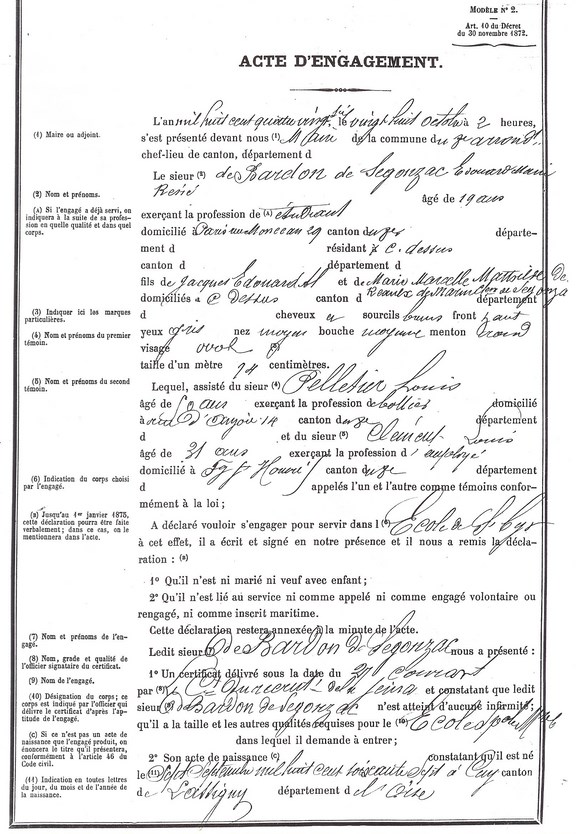 MODÈLE N° 2.
Art. 40 du Décret
du 30 novembre 1872.
ACTE D'ENGAGEMENT.
L'an mil huit cent quatre vingt six le vingt huit octobre à 2 heures,
(1) Maire ou adjoint.
s'est présenté devant nous (1) Maire de la commune du 7e arrondt
chef-lieu de canton, département d
Le sieur (2) de Bardon de Segonzac Edouard Marie
René
(2) Nom et prénoms.
âgé de 19 ans
(A) Si l'engagé a déjà servi, on
indiquera à la suite de sa profes-
sion en quelle qualité et dans quel
corps.
exerçant la profession de (A) étudiant
domicilié à Paris rue Monceau 29 canton du départe-
ment d résidant ci dessus
canton d département d
fils de Jacques Edouard et de Marie Marcelle Mathilde de
domiciliés à C Dessus canton d département
(3) Indiquer ici les marques
particulières.
d cheveux et sourcils bruns front haut
(4) Nom et prénoms du premier
témoin.
yeux gris nez moyen bouche moyenne menton rond
visage oval (3)
taille d'un mètre 74 centimètres.
(5) Nom et prénoms du second
témoin.
Lequel, assisté du sieur (4) Pelletier Louis
âgé de ans exerçant la profession de domicilié
à 14 canton du département
d et du sieur (5) Clément Louis
âgé de 31 ans exerçant la profession d'employé
domicilié à Fg St Honoré canton du département
(6) Indication du corps choisi
par l'engagé.
d appelés l'un et l'autre comme témoins confor-
mément à la loi ;
(B) Jusqu'au 1er janvier 1875,
cette déclaration pourra être faite
verbalement ; dans ce cas, on le
mentionnera dans l'acte.
A déclaré vouloir s'engager pour servir dans l (6) Ecole de St Cyr
à cet effet, il a écrit et signé en notre présence et il nous a remis la décla-
ration : (B)
1° Qu'il n'est ni marié ni veuf avec enfant ;
2° Qu'il n'est lié au service ni comme appelé ni comme engagé volontaire ou
rengagé, ni comme inscrit maritime.
Cette déclaration restera annexée à la minute de l'acte.
(7) Nom et prénoms de l'en-
gagé.
Ledit sieur (7) de Bardon de Segonzac nous a présenté :
(8) Nom, grade et qualité de
l'officier signataire du certificat.
1° Un certificat délivré sous la date du 21 courant
(9) Nom de l'engagé.
par (8) Le Ct de la Seine et constatant que ledit
(10) Désignation du corps ; ce
corps est indiqué par l'officier qui
délivre le certificat d'après l'ap-
titude de l'engagé.
sieur (9) de Bardon de Segonzac n'est atteint d'aucune infirmité ;
qu'il a la taille et les autres qualités requises pour le (10) Ecole Spéle Mre
dans lequel il demande à entrer ;
(C) Si ce n'est pas un acte de
naissance que l'engagé produit, on
énoncera le titre qu'il présentera,
conformément à l'article 46 du
Code civil.
2° Son acte de naissance (C) constatant qu'il est né
(11) Indication en toutes lettres
du jour, du mois et de l'année de
la naissance.
le (11) Sept Septembre mil huit cent soixante sept à Cuy canton
de Lassigny département de l'Oise